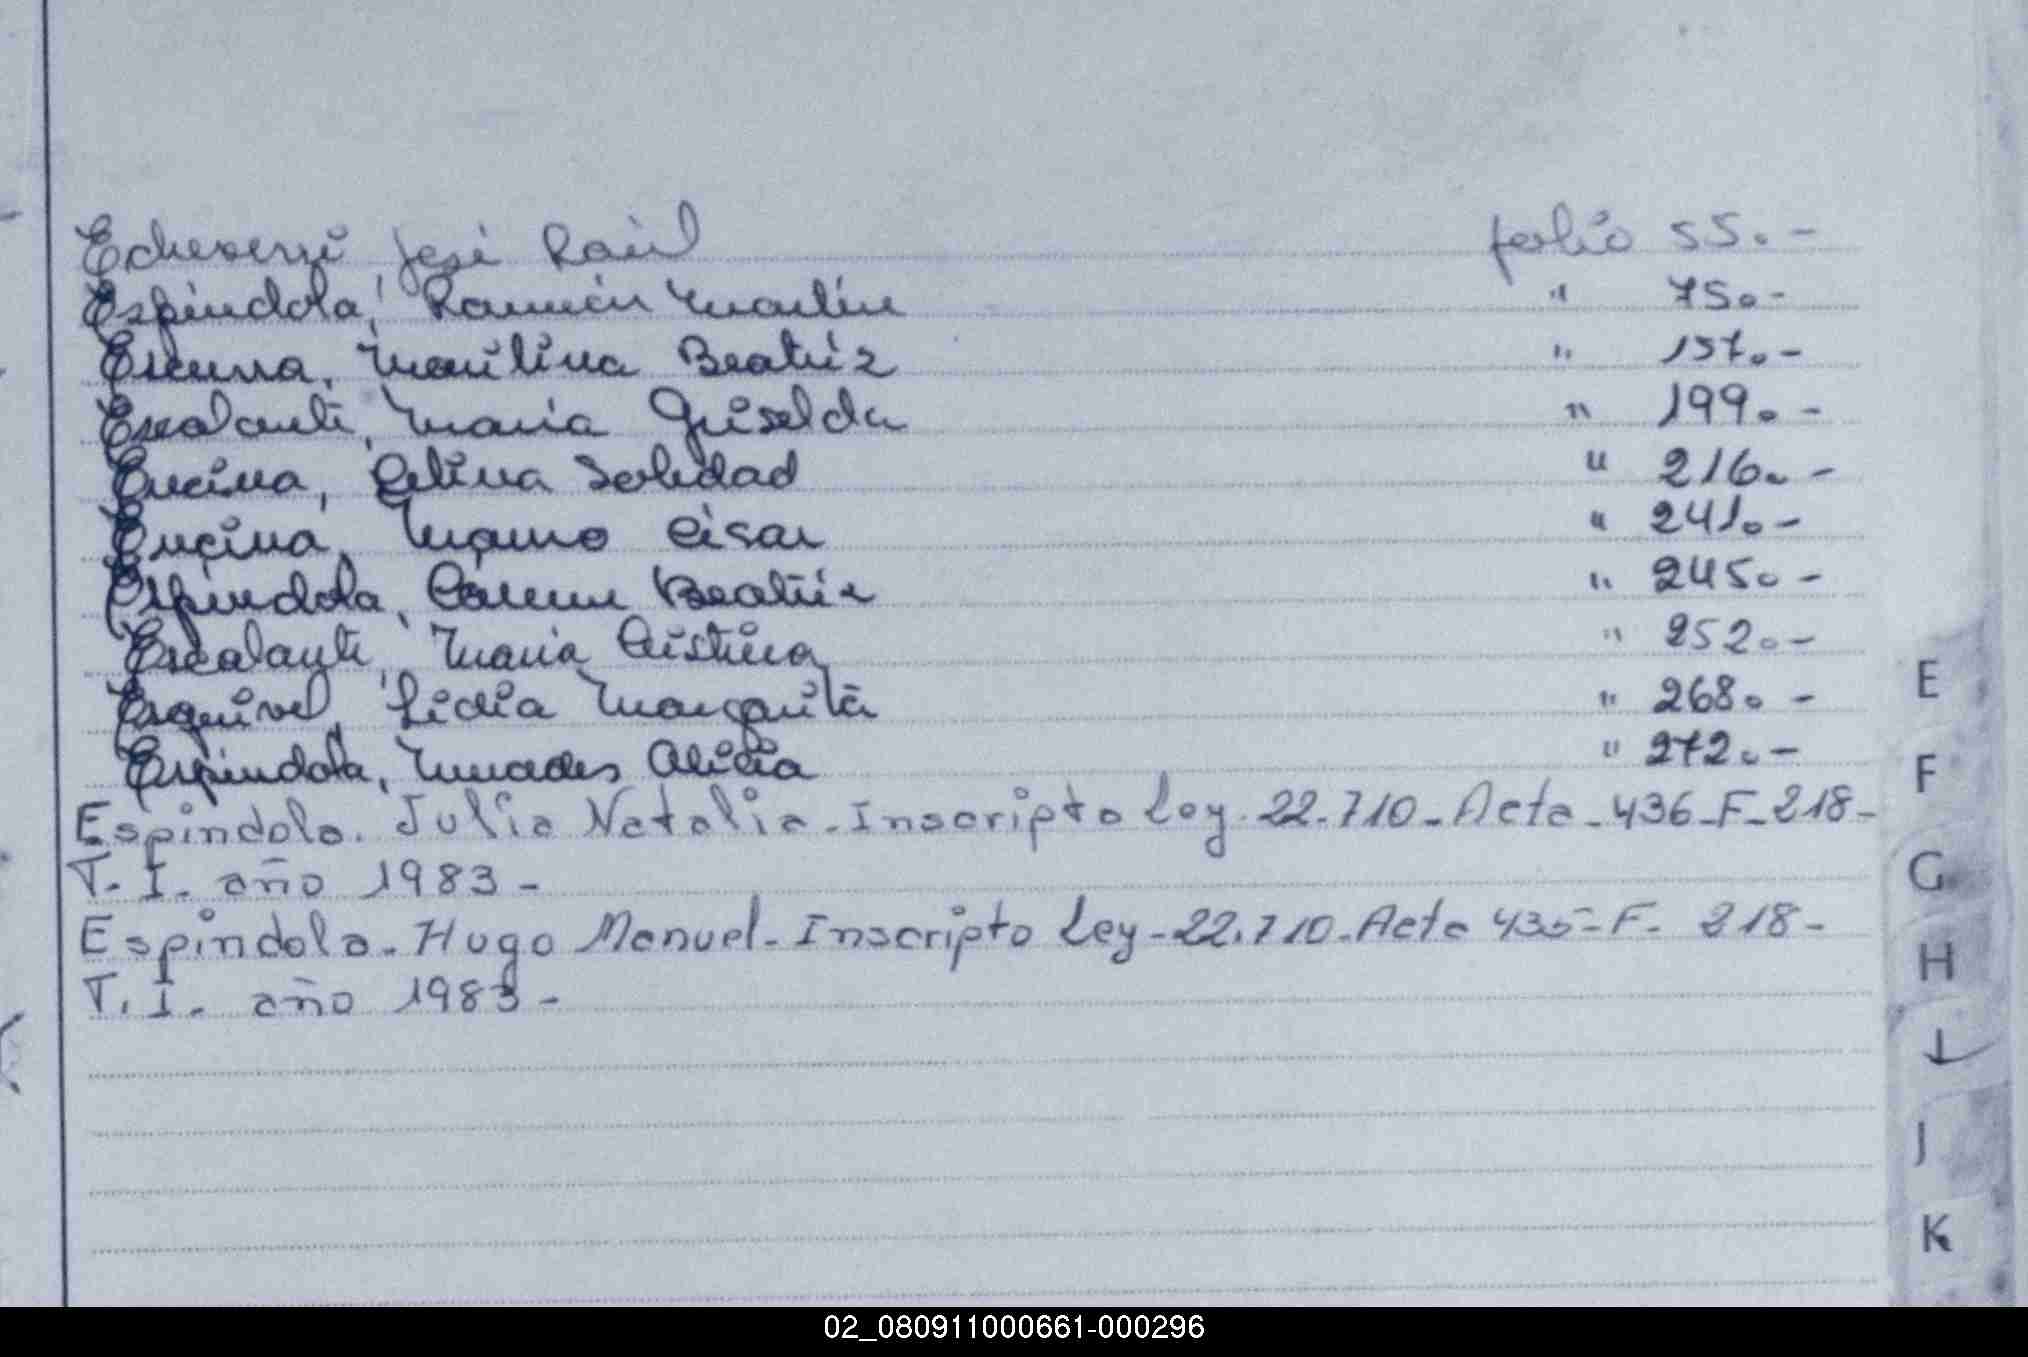 Echeverri José Raúl folio 55.-
Espindola, Ramón Martin " 75.-
Escurra, Marilina Beatriz " 157.-
Escalante, Maria Griselda " 199.-
Encina, Celina Soledad " 216.-
Encina, Mauro Cisar " 241.-
Espindola, Carmen Beatriz " 245.-
Escalante, Maria Cristina " 252.-
Esquivel, Lidia Margarita " 268.-
Espindola, Alicia " 272.-
Espindola. Julia Natalia. Inscripto Ley. 22.710 - Acta - 436 - F - 218 -
T. I. año 1983 -
Espindola - Hugo Manuel - Inscripto Ley - 22.710 - Acta 435 - F - 218 -
T. I. año 1983 -
E
F
G
H
I
J
K
02_080911000661-000296